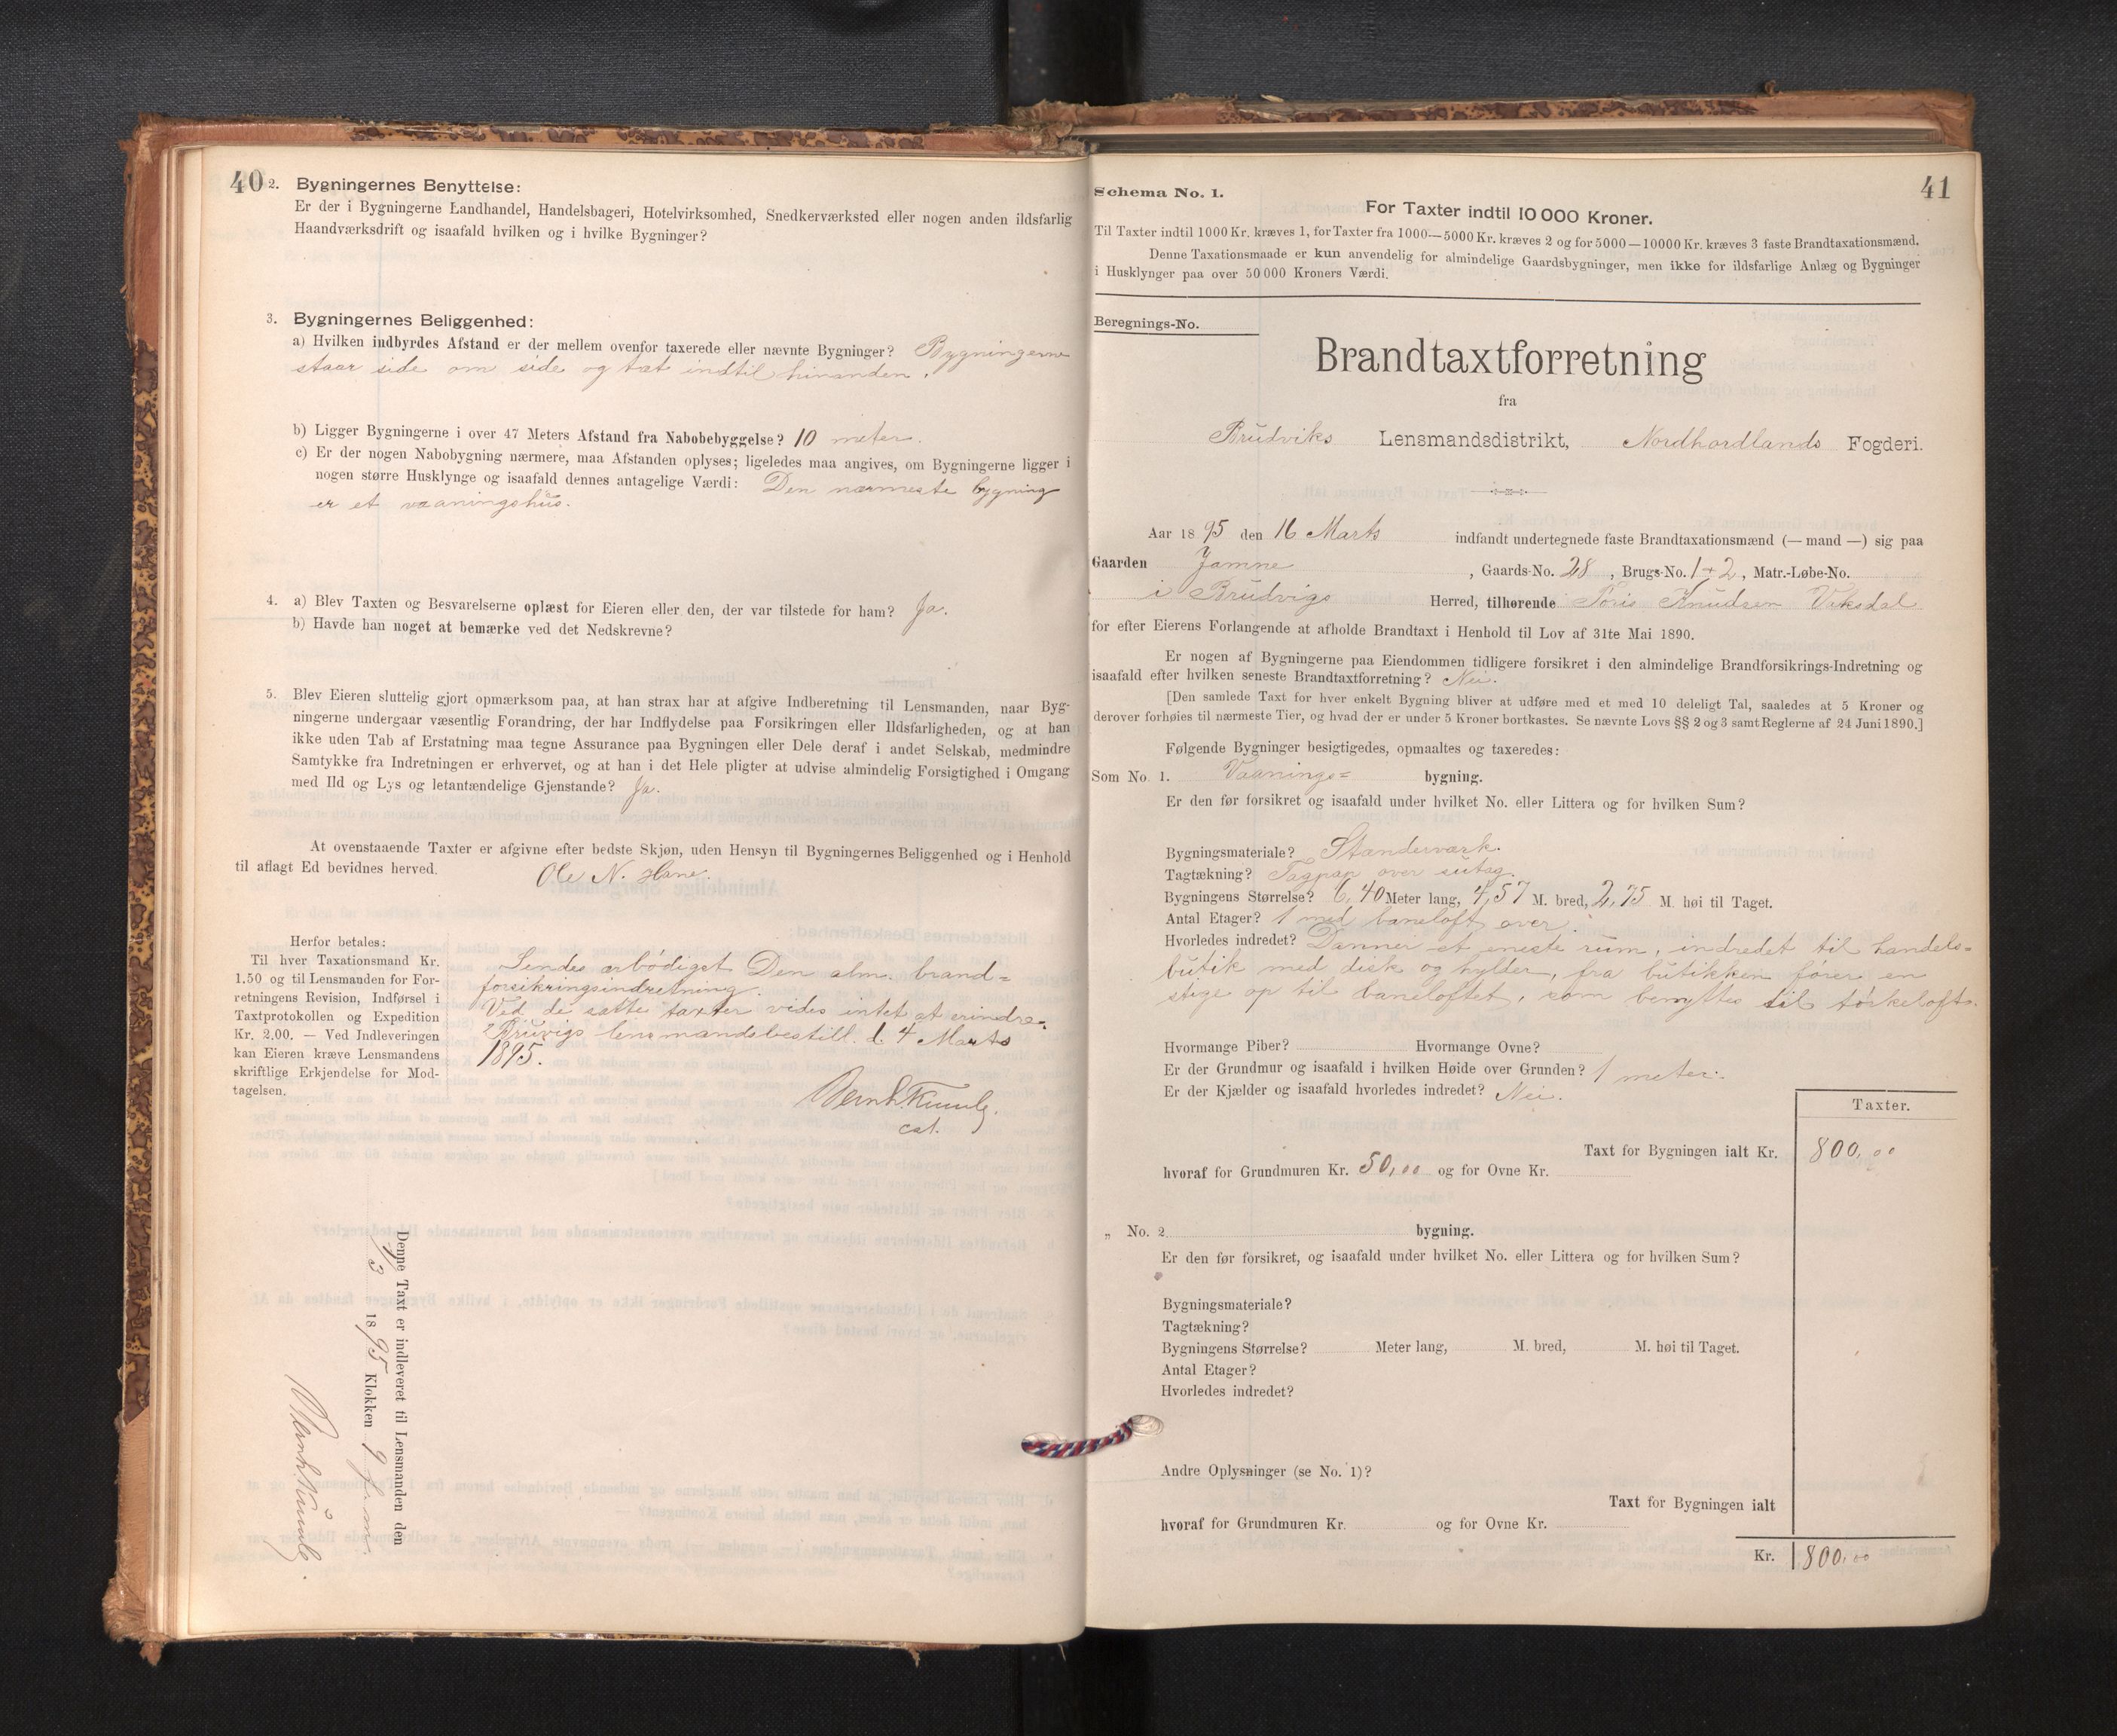 40
2. Bygningernes Benyttelse:
Er der i Bygningerne Landhandel, Handelsbageri, Hotelvirksomhed, Snedkerværksted eller nogen anden ildsfarlig
Haandværksdrift og isaafald hvilken og i hvilke Bygninger?
3. Bygningernes Beliggenhed:
a) Hvilken indbyrdes Afstand er der mellem ovenfor taxerede eller nævnte Bygninger? Bygningerne
staar side om side og tæt indtil hinanden.
b) Ligger Bygningerne i over 47 Meters Afstand fra Nabobebyggelse? 10 meter.
c) Er der nogen Nabobygning nærmere, maa Afstanden oplyses; ligeledes maa angives, om Bygningerne ligger i
nogen større Husklynge og isaafald dennes antagelige Værdi: Den nærmeste bygning
er et vaaningshus.
4. a) Blev Taxten og Besvarelserne oplæst for Eieren eller den, der var tilstede for ham? Ja.
b) Havde han noget at bemærke ved det Nedskrevne?
5. Blev Eieren sluttelig gjort opmærksom paa, at han strax har at afgive Indberetning til Lensmanden, naar Byg-
ningerne undergaar væsentlig Forandring, der har Indflydelse paa Forsikringen eller Ildsfarligheden, og at han
ikke uden Tab af Erstatning maa tegne Assurance paa Bygningen eller Dele deraf i andet Selskab, medmindre
Samtykke fra Indretningen er erhvervet, og at han i det Hele pligter at udvise almindelig Forsigtighed i Omgang
med Ild og Lys og letantændelige Gjenstande? Ja.
At ovenstaaende Taxter er afgivne efter bedste Skjøn, uden Hensyn til Bygningernes Beliggenhed og i Henhold
til aflagt Ed bevidnes herved.
Ole N. Hane.
Herfor betales:
Til hver Taxationsmand Kr.
1.50 og til Lensmanden for For-
retningens Revision, Indførsel i
Taxtprotokollen og Expedition
Kr. 2.00. — Ved Indleveringen
kan Eieren kræve Lensmandens
skriftlige Erkjendelse for Mod-
tagelsen.
Sendes ærbødigst Den alm. brand=
forsikringsindretning.
Ved de satte taxter vides intet at erindre.
Bruvigs lensmandsbestill. d. 4 Marts
1895.
cst.
Denne Taxt er indleveret til Lensmanden den
4/3 1895 Klokken 9 f. m.
41
Schema No. 1.
For Taxter indtil 10 000 Kroner.
Til Taxter indtil 1000 Kr. kræves 1, for Taxter fra 1000—5000 Kr. kræves 2 og for 5000—10000 Kr. kræves 3 faste Brandtaxationsmænd.
Denne Taxationsmaade er kun anvendelig for almindelige Gaardsbygninger, men ikke for ildsfarlige Anlæg og Bygninger
i Husklynger paa over 50 000 Kroners Værdi.
Beregnings-No.
Brandtaxtforretning
fra
Brudviks Lensmandsdistrikt, Nordhordlands Fogderi.
Aar 1895 den 16 Marts indfandt undertegnede faste Brandtaxationsmænd (— mand —) sig paa
Gaarden Jamne, Gaards-No. 28, Brugs-No. 1+2, Matr.-Løbe-No.
i Brudvigs Herred, tilhørende Knudsen Viksdal
for efter Eierens Forlangende at afholde Brandtaxt i Henhold til Lov af 31te Mai 1890.
Er nogen af Bygningerne paa Eiendommen tidligere forsikret i den almindelige Brandforsikrings-Indretning og
isaafald efter hvilken seneste Brandtaxtforretning? Nei.
[Den samlede Taxt for hver enkelt Bygning bliver at udføre med et med 10 deleligt Tal, saaledes at 5 Kroner og
derover forhøies til nærmeste Tier, og hvad der er under 5 Kroner bortkastes. Se nævnte Lovs §§ 2 og 3 samt Reglerne af 24 Juni 1890.]
Følgende Bygninger besigtigedes, opmaaltes og taxeredes:
Som No. 1. Vaanings= bygning.
Er den før forsikret og isaafald under hvilket No. eller Littera og for hvilken Sum?
Bygningsmateriale? Standerværk.
Tagtækning? Tagpap over sutag.
Bygningens Størrelse? 6,40 Meter lang, 4,57 M. bred, 2,75 M. høi til Taget.
Antal Etager? 1 med baneloft over.
Hvorledes indredet? Danner et eneste rum, indredet til handels=
butik med disk og hylder, fra butikken fører en
stige op til baneloftet, som benyttes til tørkeloft.
Hvormange Piber? Hvormange Ovne?
Er der Grundmur og isaafald i hvilken Høide over Grunden? 1 meter.
Er der Kjælder og isaafald hvorledes indredet? Nei.
Taxter.
Taxt for Bygningen ialt Kr. 800,00
hvoraf for Grundmuren Kr. 50,00 og for Ovne Kr.
„ No. 2 bygning.
Er den før forsikret, og isaafald under hvilket No. eller Littera og for hvilken Sum?
Bygningsmateriale?
Tagtækning?
Bygningens Størrelse? Meter lang, M. bred, M. høi til Taget.
Antal Etager?
Hvorledes indredet?
Andre Oplysninger (se No. 1)?
Taxt for Bygningen ialt
hvoraf for Grundmuren Kr. og for Ovne Kr.
Kr. 800,00